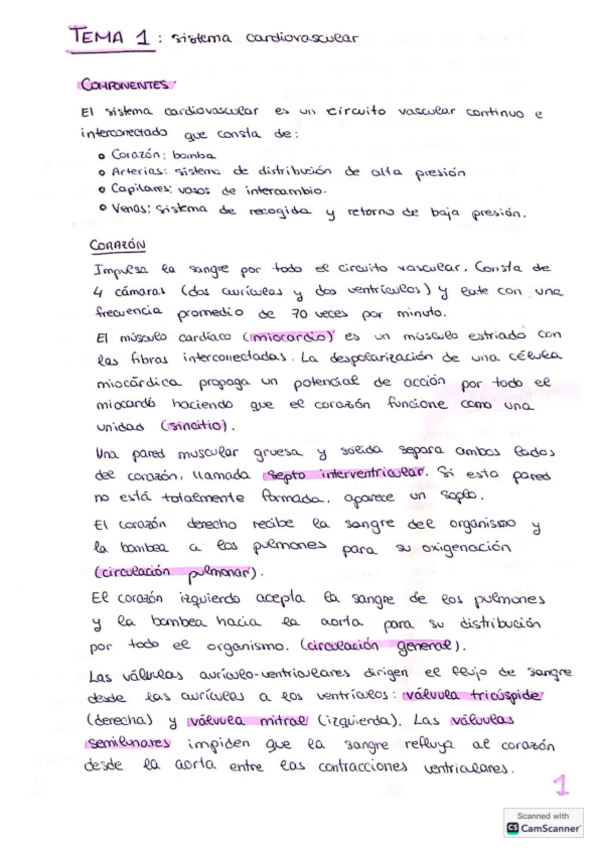 TEMA 1: sistema cardiovascular
COMPONENTES
El sistema cardiovascular es un circuito vascular continuo e
interconectado que consta de:
• Corazón: bomba
• Arterias: sistema de distribución de alta presión
• Capilares: vasos de intercambio.
• Venas: sistema de recogida y retorno de baja presión.
CORAZÓN
Impulsa la sangre por todo el circuito vascular. Consta de
4 cámaras (dos aurículas y dos ventrículos) y late con una
frecuencia promedio de 70 veces por minuto.
El músculo cardíaco (miocardio) es un músculo estriado con
las fibras interconectadas. La despolarización de una célula
miocárdica propaga un potencial de acción por todo el
miocardio haciendo que el corazón funcione como una
unidad (sincitio).
Una pared muscular gruesa y sólida separa ambos lados
del corazón, llamada septo interventricular. Si esta pared
no está totalmente formada, aparece un soplo.
El corazón derecho recibe la sangre del organismo y
la bombea a los pulmones para su oxigenación
(circulación pulmonar).
El corazón izquierdo acepta la sangre de los pulmones
y la bombea hacia la aorta para su distribución
por todo el organismo. (circulación general).
Las válvulas aurículo-ventriculares dirigen el flujo de sangre
desde las aurículas a los ventrículos: válvula tricúspide
(derecha) y válvula mitral (izquierda). Las válvulas
semilunares impiden que la sangre refluya al corazón
desde la aorta entre las contracciones ventriculares.
1
Scanned with
CS CamScanner